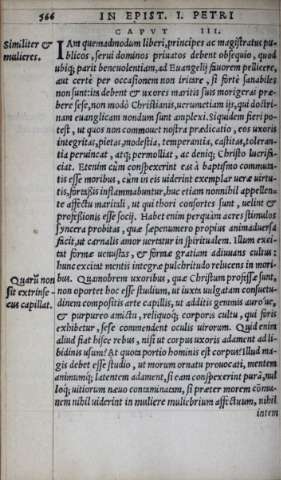 566 IN EPIST. I. PETRI
CAPVT III.
Similiter &
mulieres.
IAm quemadmodum liberi, principes ac magistratus pu-
blicos, serui dominos priuatos debent obsequio, quod
ubiq; parit beneuolentiam, ad Euangelij fauorem pellicere,
aut certè per occasionem non irritare, si fortè sanabiles
non sunt: ita debent & uxores maritis suis morigeras præ-
bere sese, non modò Christianis, uerumetiam ijs, qui doctri-
nam euangelicam nondum sunt amplexi. Siquidem fieri po-
test, ut quos non commouet nostra prædicatio, eos uxoris
integritas, pietas, modestia, temperantia, castitas, toleran-
tia peruincat, atq; permolliat, ac deniq; Christo lucrifi-
ciat. Etenim cùm conspexerint eas à baptismo commuta-
tis esse moribus, cùm in eis uiderint exemplar ueræ uirtu-
tis, fortassis inflammabuntur, huc etiam nonnihil appellen-
te affectu maritali, ut qui thori consortes sunt, uelint &
professionis esse socij. Habet enim perquàm acres stimulos
syncera probitas, quæ sæpenumero propius animaduersa
ficit, ut carnalis amor uertatur in spiritualem. Illum exci-
tat formæ uenustas, & formæ gratiam adiuuans cultus:
hunc excitat mentis integræ pulchritudo relucens in mori-
bus. Quamobrem uxoribus, quæ Christum professæ sunt,
non oportet hoc esse studium, ut iuxta uulgatam consuetu-
dinem compositis arte capillis, ut additis gemmis auro'ue,
& purpureo amictu, reliquoq; corporis cultu, qui foris
exhibetur, sese commendent oculis uirorum. Quid enim
aliud fiat hisce rebus, nisi ut corpus uxoris adament ad li-
bidinis usum? At quota portio hominis est corpus? Illud ma-
gis debet esse studio, ut morum ornatu prouocati, mentem
animumq; latentem adament, si eam conspexerint purā, nul-
loq; uitiorum næuo contaminatam, si præter morem commu-
nem nihil uiderint in muliere muliebrium affectuum, nihil
intem
Quarū non
sit extrinse-
cus capillat.